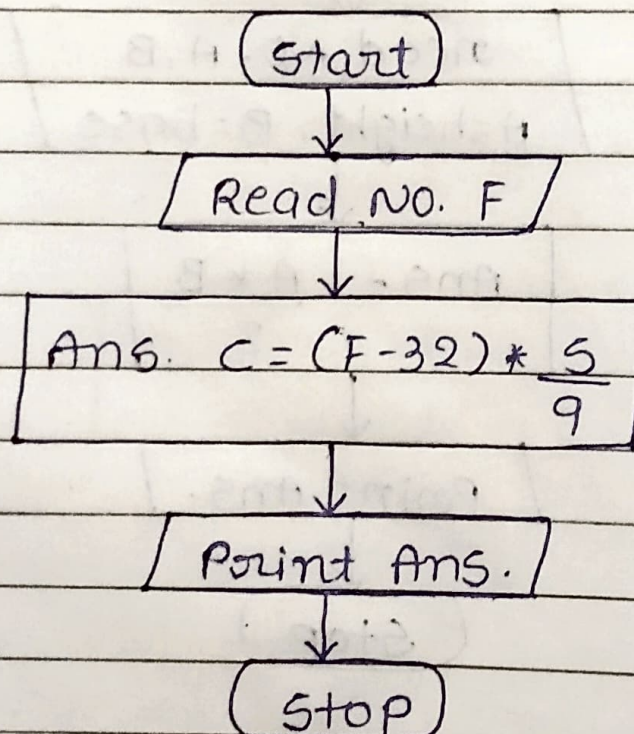 Start
Read No. F
Ans. C = (F-32) * 5/9
Print Ans.
Stop